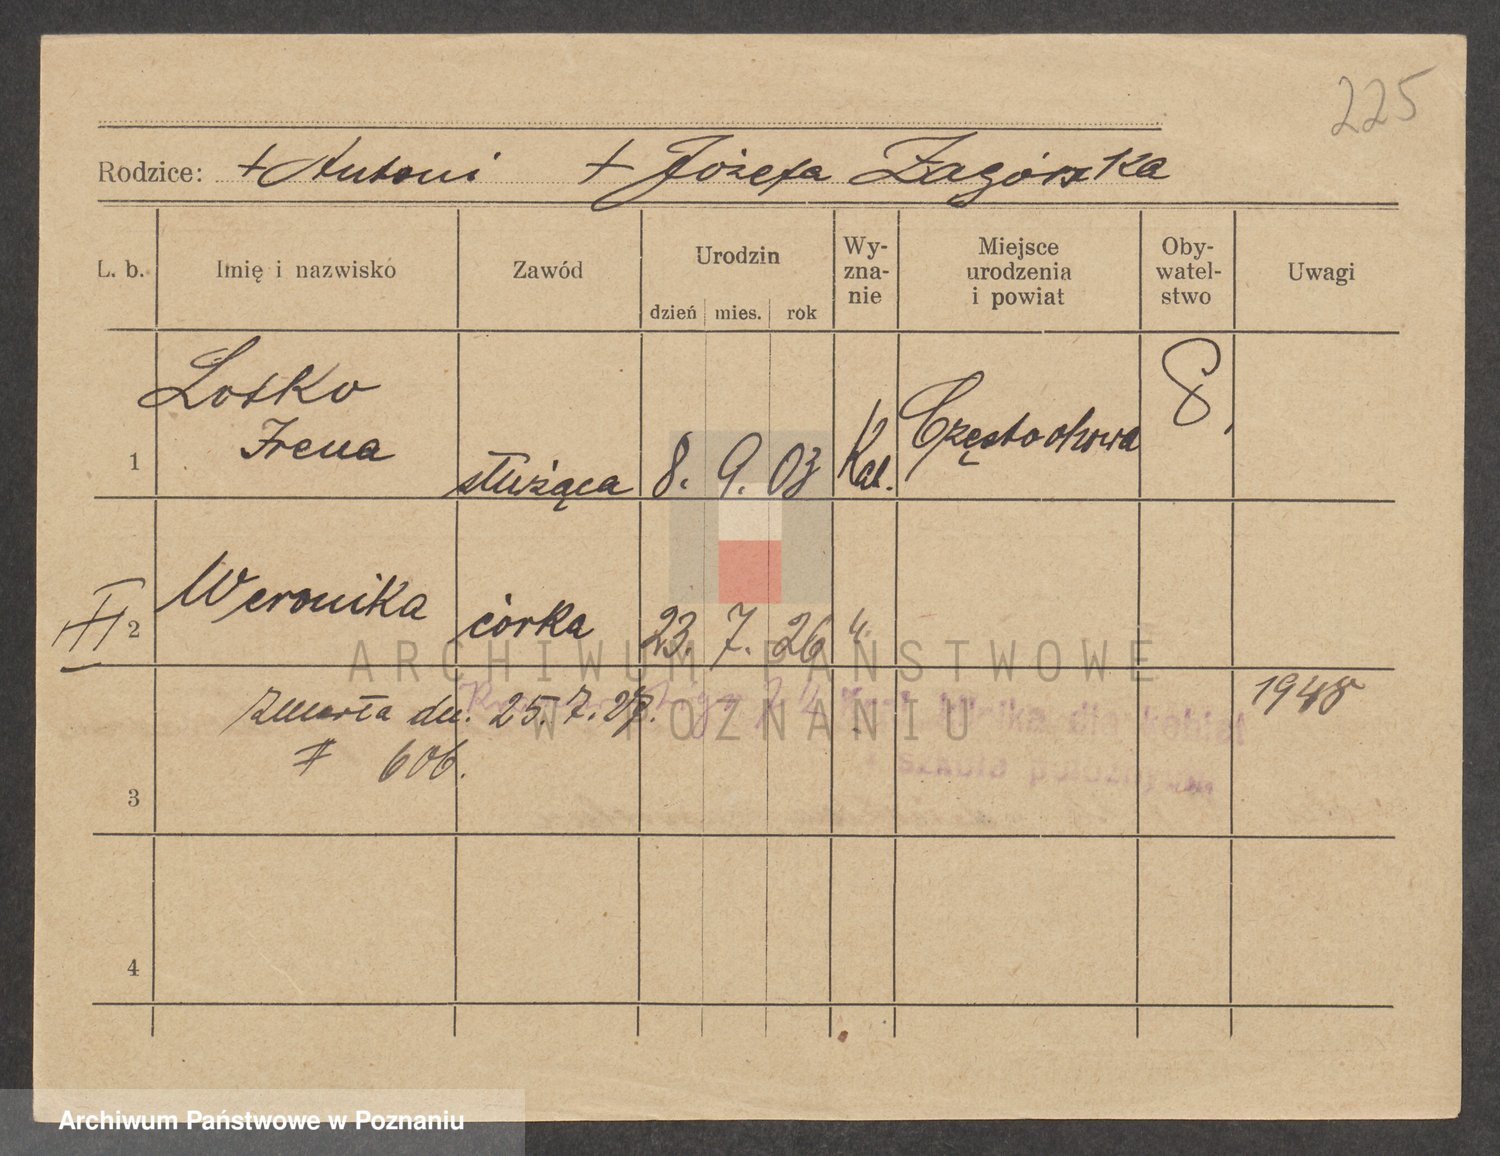 225
Rodzice: + Antoni + Józefa Zagórska
L. b. Imię i nazwisko Zawód Urodzin dzień mies. rok Wy-zna-nie Miejsce urodzenia i powiat Oby-watel-stwo Uwagi
Losko
1 Irena służąca 8. 9. 03 Kat. Częstochowa
II 2 Weronika córka 23. 7. 26 "
ARCHIWUM PAŃSTWOWE
zmarła dn. 25. 7. 1948
W POZNANIU
# 606.
3
4
Archiwum Państwowe w Poznaniu